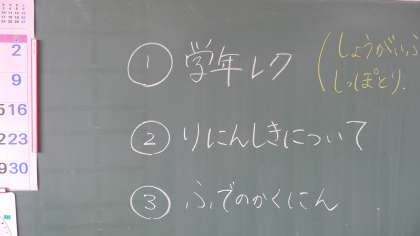 ① 学年レク
(しょうがいぶ
しっぽとり.
② りにんしきについて
③ ふでのかくにん
2
9
16
23
30